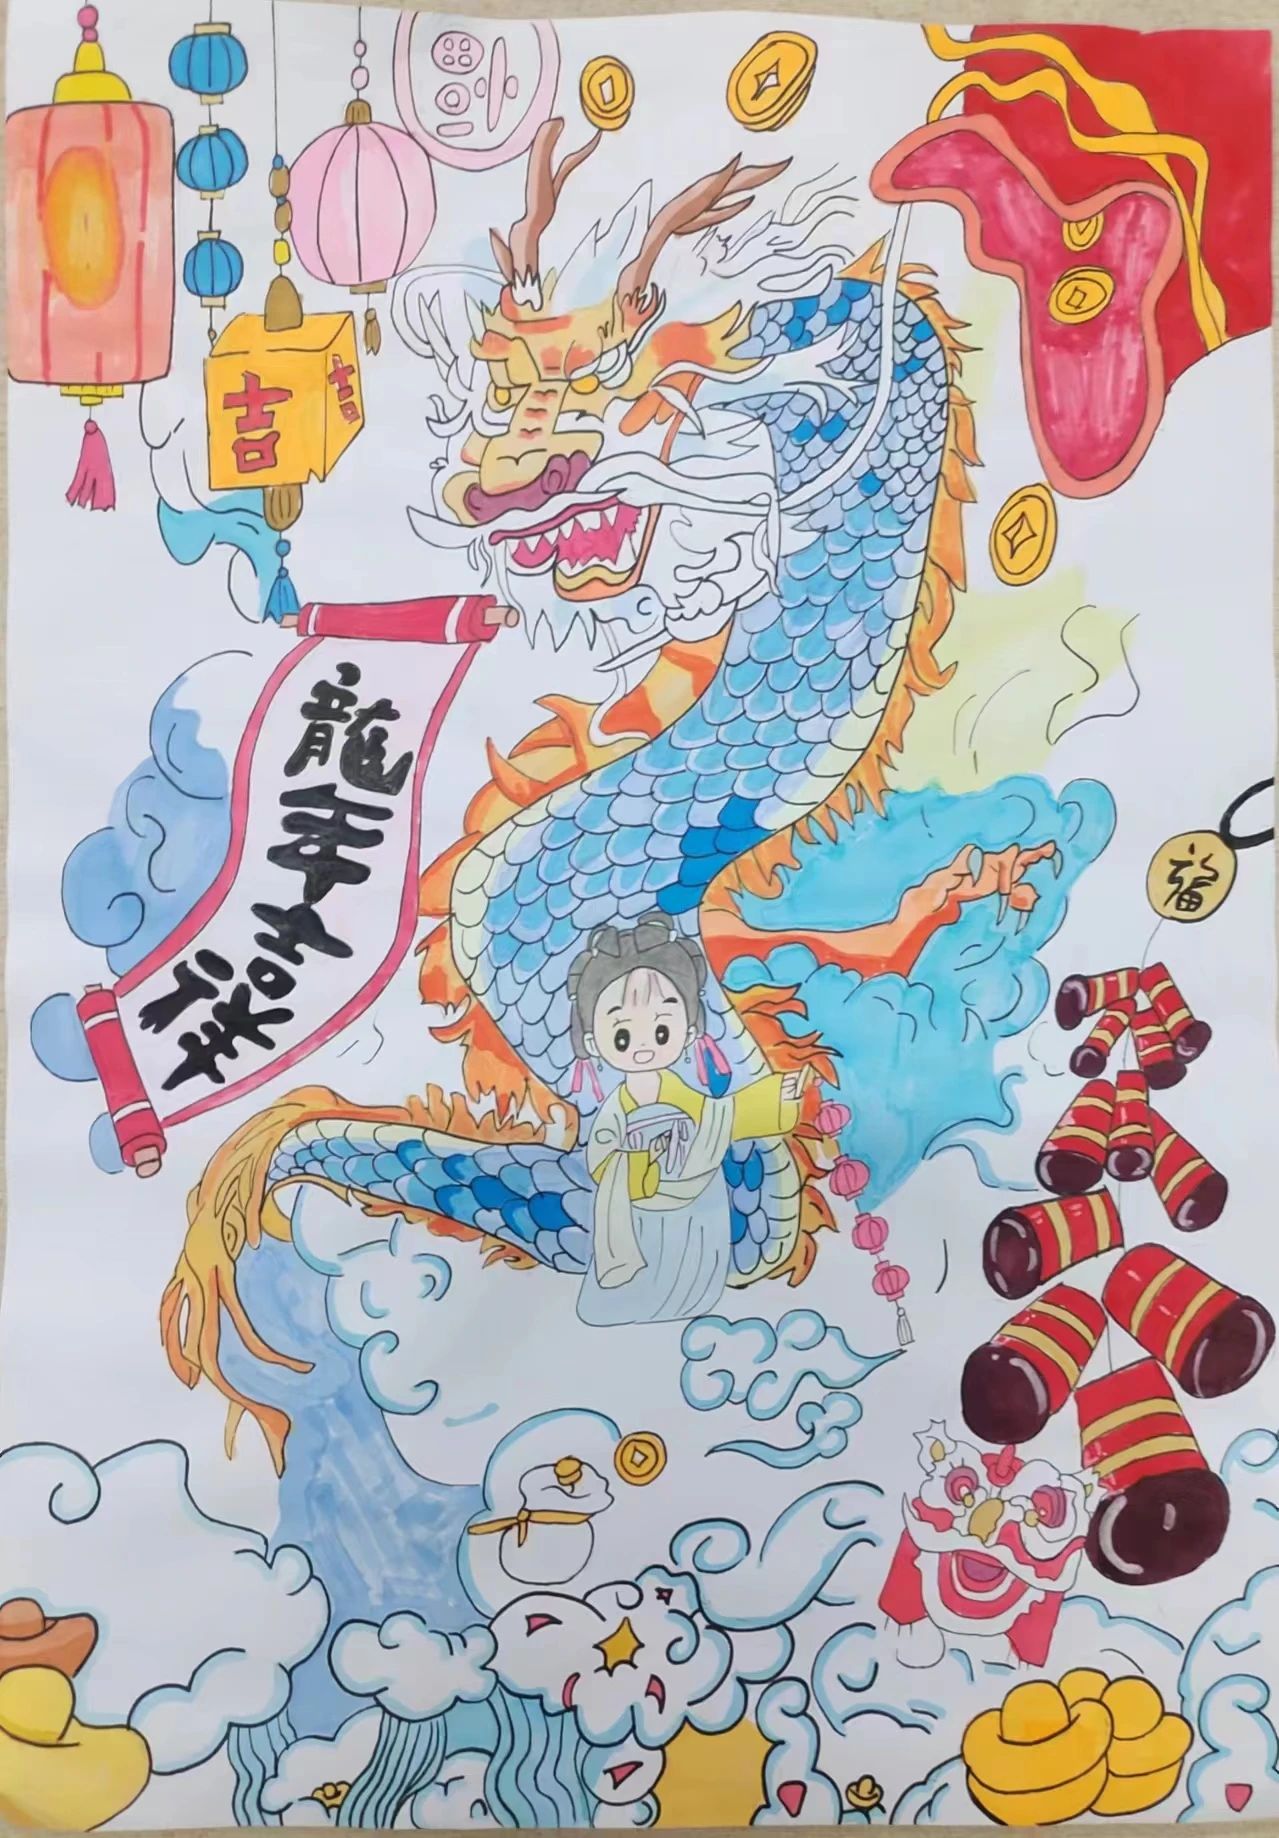 吉
吉
龍年吉祥
福